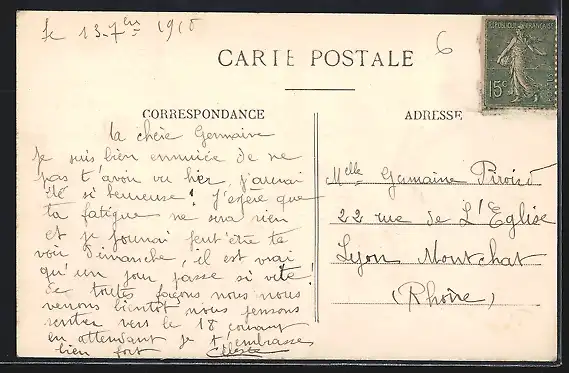 le 13-7bre 1918
6
CARTE POSTALE
RÉPUBLIQUE FRANÇAISE
15c
CORRESPONDANCE
ADRESSE
Ma chère Germaine
Je suis bien ennuiée de ne
pas t'avoir vu hier, j'aurai
été si heureuse! J'espère que
ta fatigue ne sera rien
et je pourrai peut'être te
voir Dimanche, il est vrai
qu'un jour passe si vite!
De toutes façons nous nous
verrons bientôt nous pensons
rentrer vers le 18 courant
en attendant je t'embrasse
bien fort
Melle Germaine
22 rue de L'Eglise
Lyon Montchat
(Rhône)